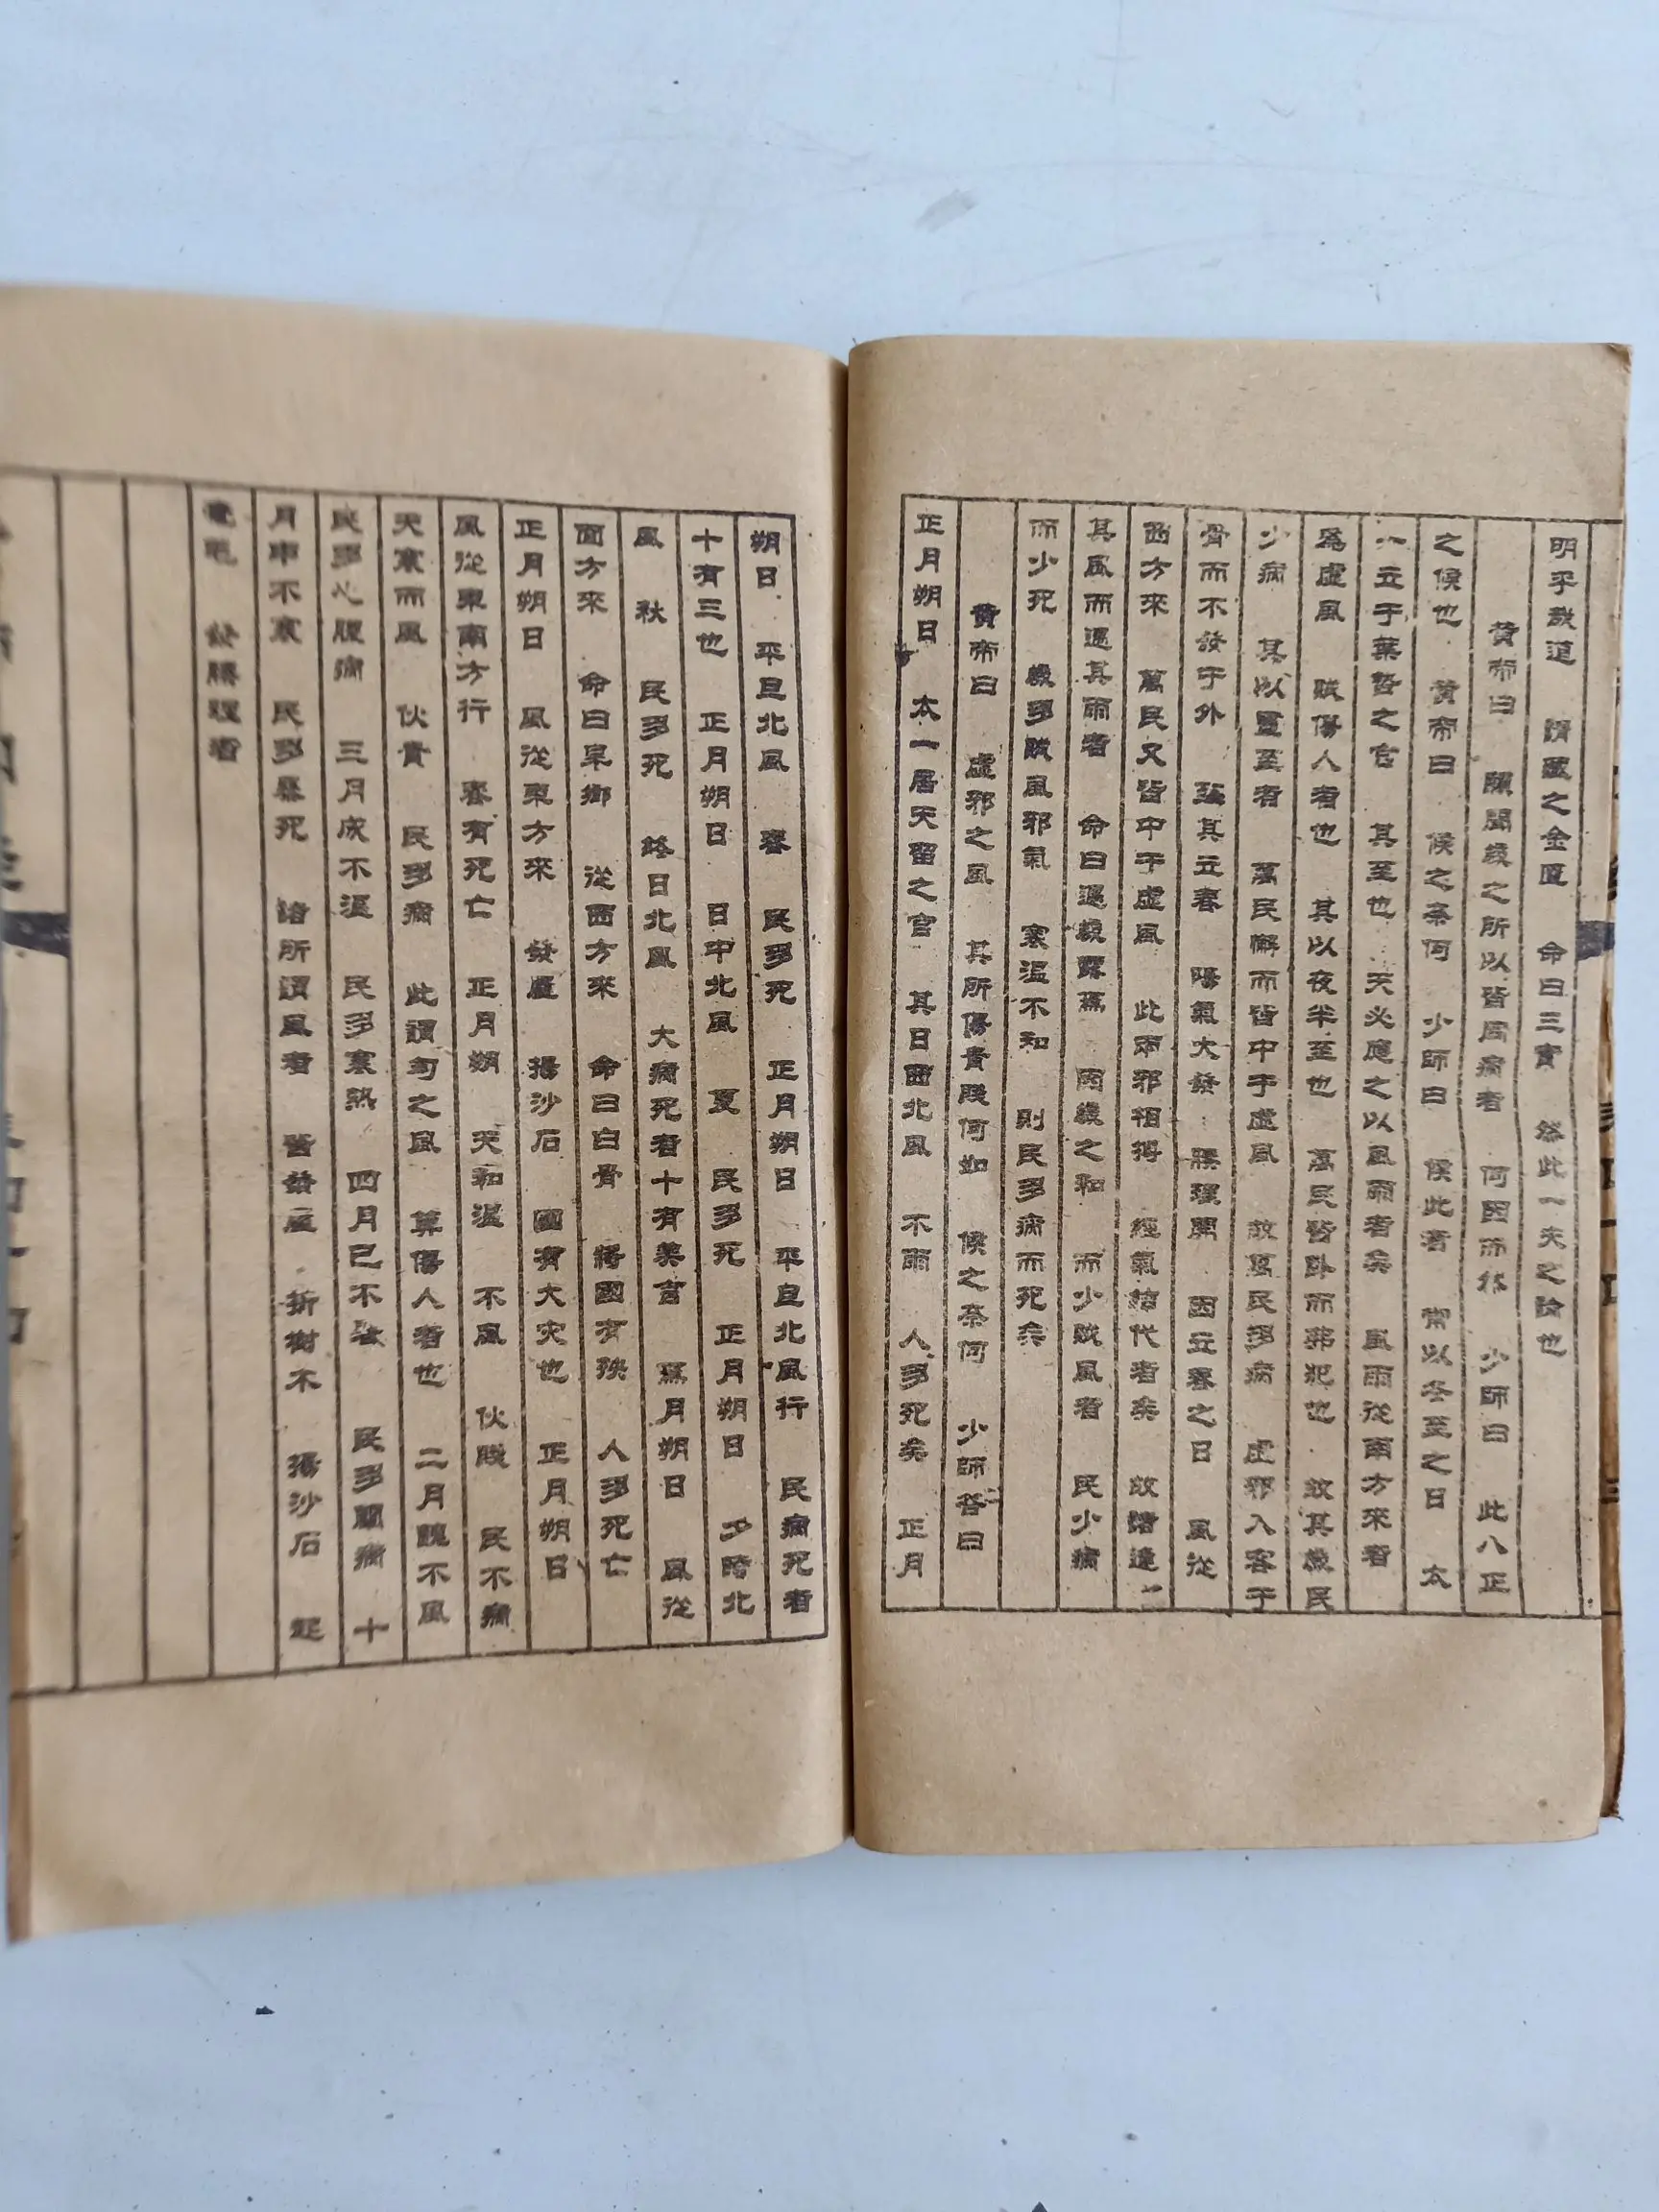 明乎哉道 請藏之金匱 命曰三實 然此一夫之論也
黃帝曰 願聞歲之所以皆同病者 何因而然 少師曰 此八正
之候也 黃帝曰 候之奈何 少師曰 候此者 常以冬至之日 太
一立于葉蟄之宮 其至也 天必應之以風雨者矣 風雨從南方來者
爲虛風 賊傷人者也 其以夜半至也 萬民皆卧而弗犯也 故其歲民
少病 其以晝至者 萬民懈而皆中于虛風 故萬民多病 虛邪入客于
骨而不發于外 至其立春 陽氣大發 腠理開 因立春之日 風從
西方來 萬民又皆中于虛風 此兩邪相搏 經氣結代者矣 故諸逢
其風而遇其雨者 命曰遇歲露焉 因歲之和 而少賊風者 民少病
而少死 歲多賊風邪氣 寒溫不和 則民多病而死矣
黃帝曰 虛邪之風 其所傷貴賤何如 候之奈何 少師答曰
正月朔日 太一居天留之宮 其日西北風 不雨 人多死矣 正月
朔日 平旦北風 春 民多死 正月朔日 平旦北風行 民病死者
十有三也 正月朔日 日中北風 夏 民多死 正月朔日 夕時北
風 秋 民多死 終日北風 大病死者十有六 正月朔日 風從
南方來 命曰旱鄉 從西方來 命曰白骨 將國有殃 人多死亡
正月朔日 風從東方來 發屋 揚沙石 國有大灾也 正月朔日
風從東南方行 春有死亡 正月朔 天和溫 不風 糴賤 民不病
天寒而風 糴貴 民多病 此謂歲之風 傷人者也 二月丑不風
民多心腹病 三月戌不溫 民多寒熱 四月巳不暑 民多癉病 十
月申不寒 民多暴死 諸所謂風者 皆發屋 折樹木 揚沙石 起
毫毛 發腠理者